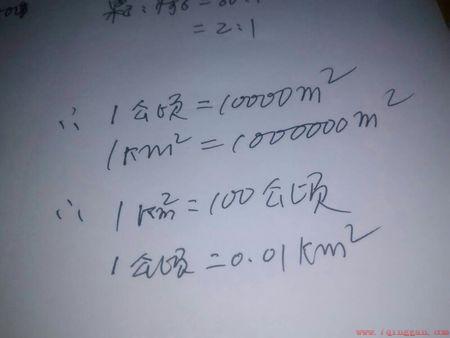 = 2:1
∵ 1公顷=10000m²
1km²=1000000m²
∴ 1km²=100公顷
1公顷=0.01km²
www.iqinggan.com